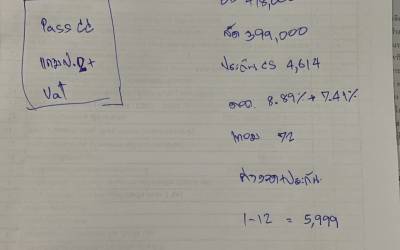 Pass CC
แถมป.2+
Vat
418,000
สด 399,000
ประกัน CS 4,614
ดอก. 8.89% + 7.41%
ผ่อน 72
ค่างวด+ประกัน
1-12 = 5,999